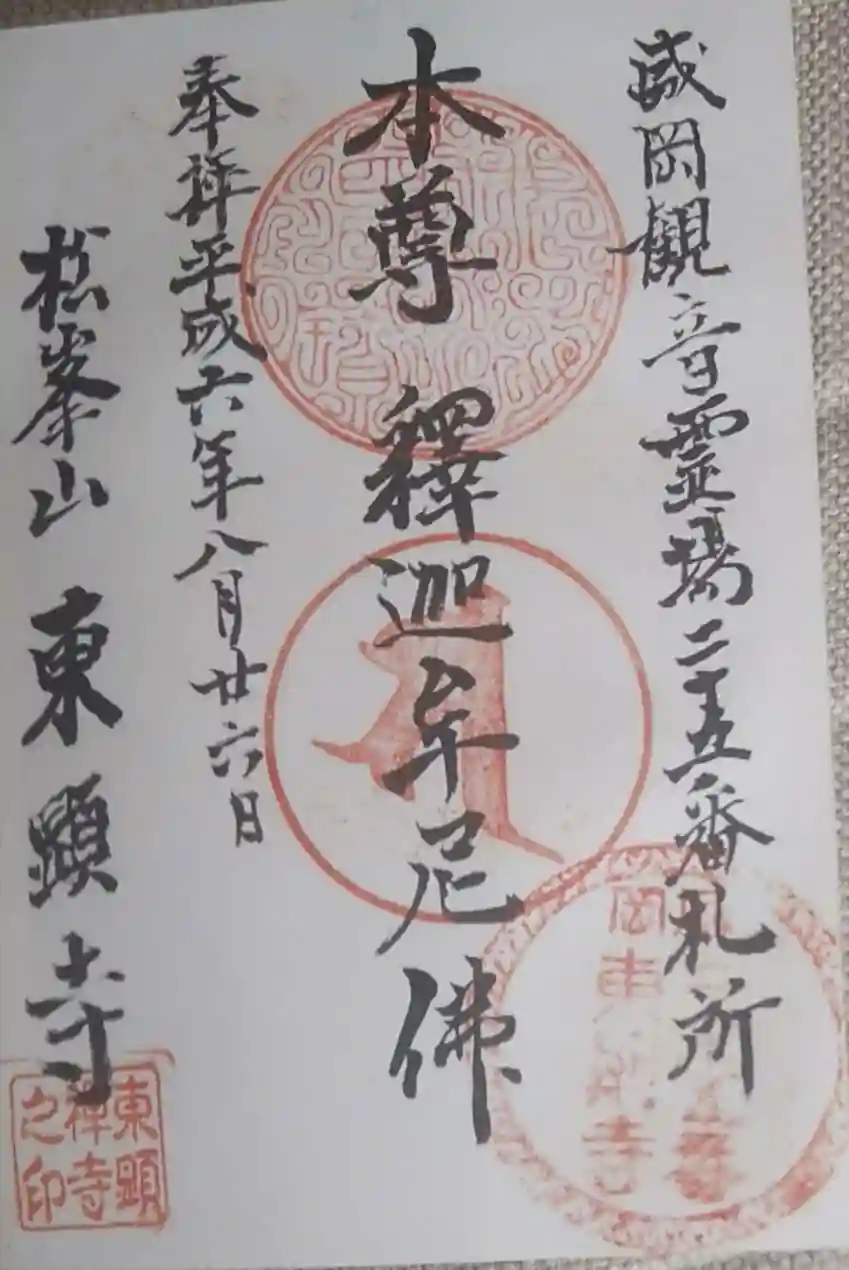 盛岡観音霊場二十五番札所
本尊 釋迦牟尼佛
奉拝平成六年八月廿六日
松峯山 東顕寺
東顕
禅寺
之印